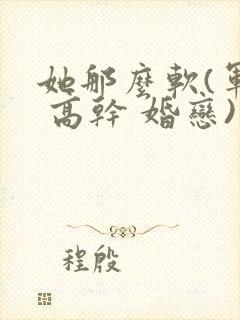 她那麼軟(軍
高幹 婚戀)
程殷